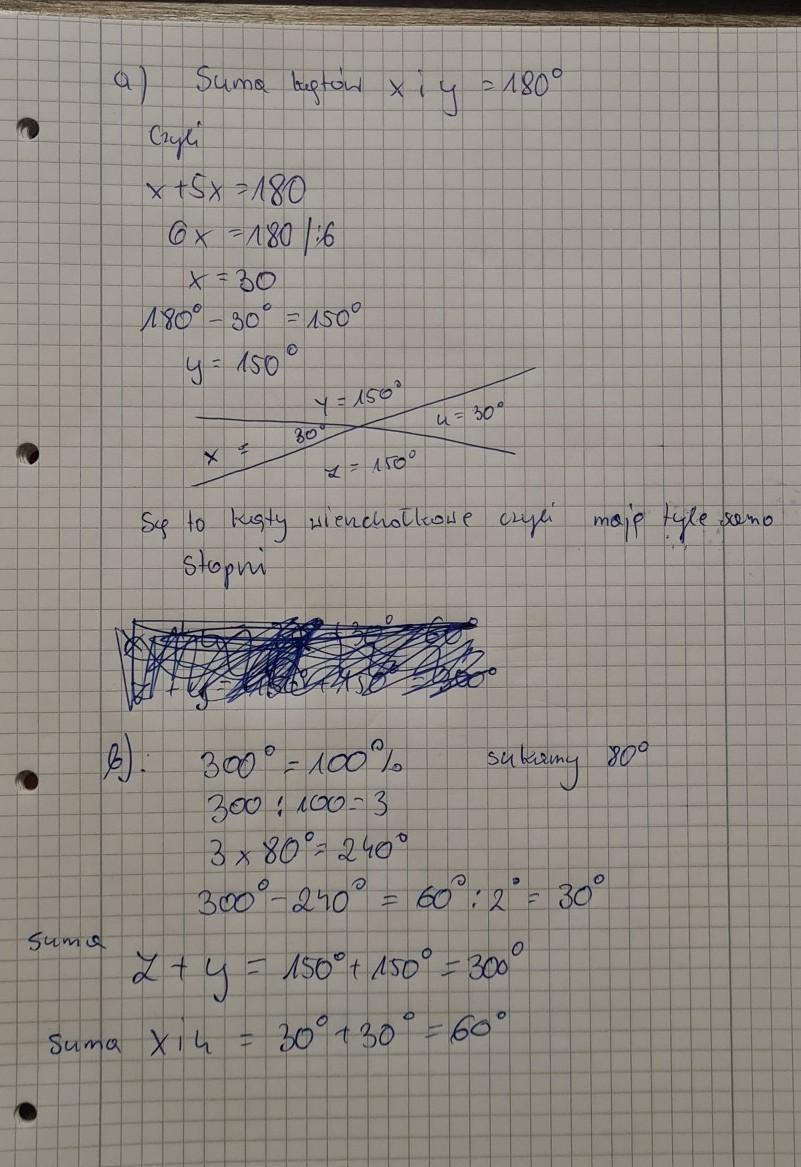 a) Suma kątów x i y = 180°
Czyli
x + 5x = 180
6x = 180 /:6
x = 30
180° - 30° = 150°
y = 150°
y = 150°
u = 30°
x = 30°
z = 150°
Są to kąty wierzchołkowe czyli mają tyle samo
stopni
b). 300° = 100% sukamy 80°
300 : 100 = 3
3 x 80° = 240°
300° - 240° = 60° : 2° = 30°
suma
z + y = 150° + 150° = 300°
suma x i u = 30° + 30° = 60°